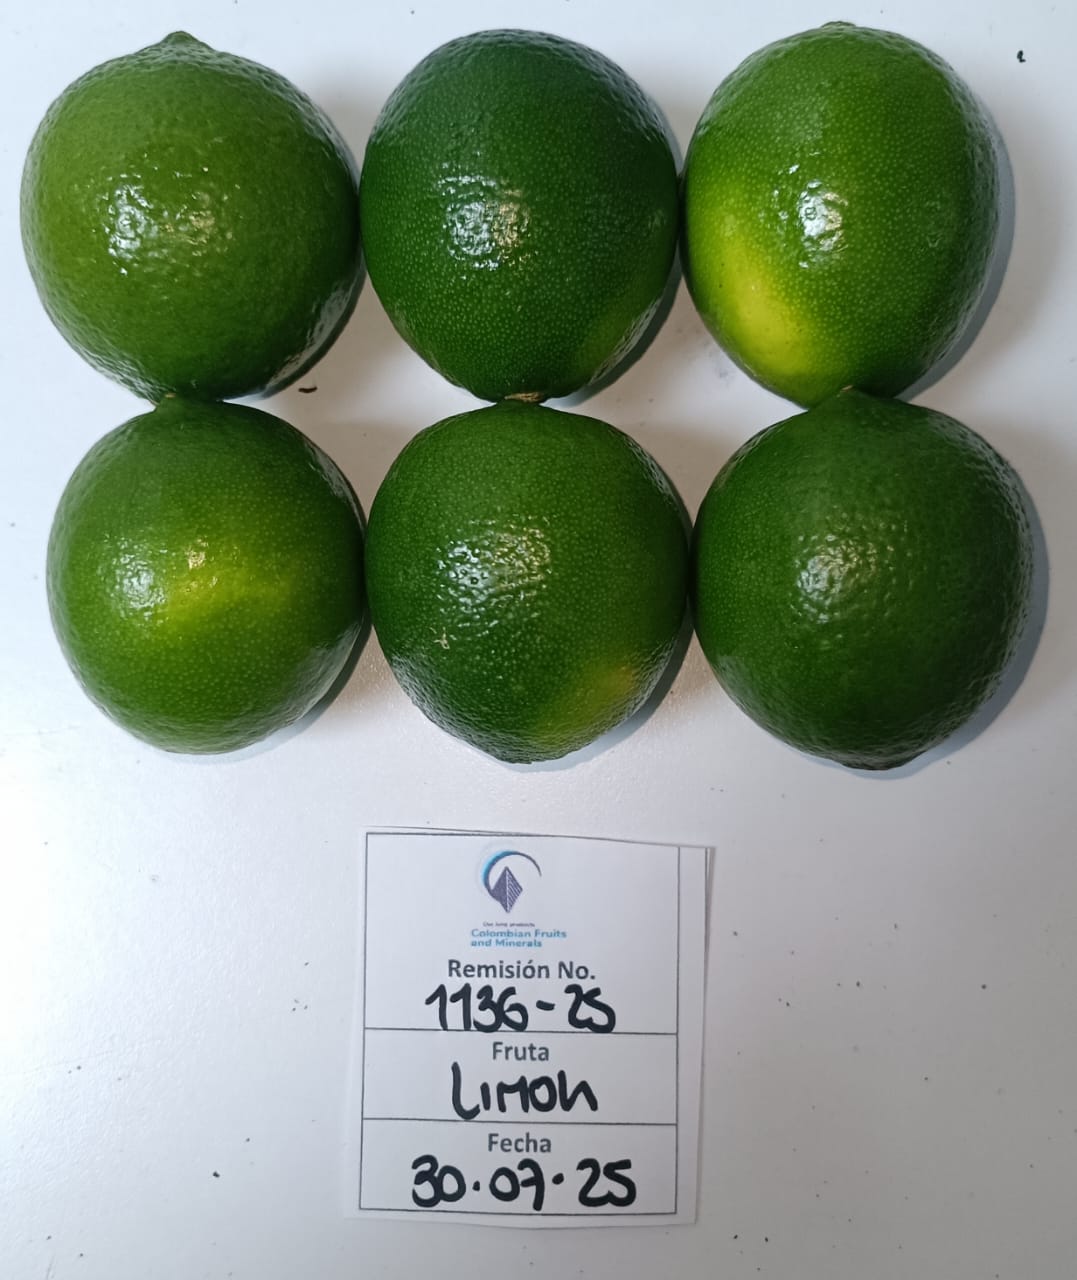 Our land products
Colombian Fruits
and Minerals
Remisión No.
1136-25
Fruta
Limon
Fecha
30.07.25